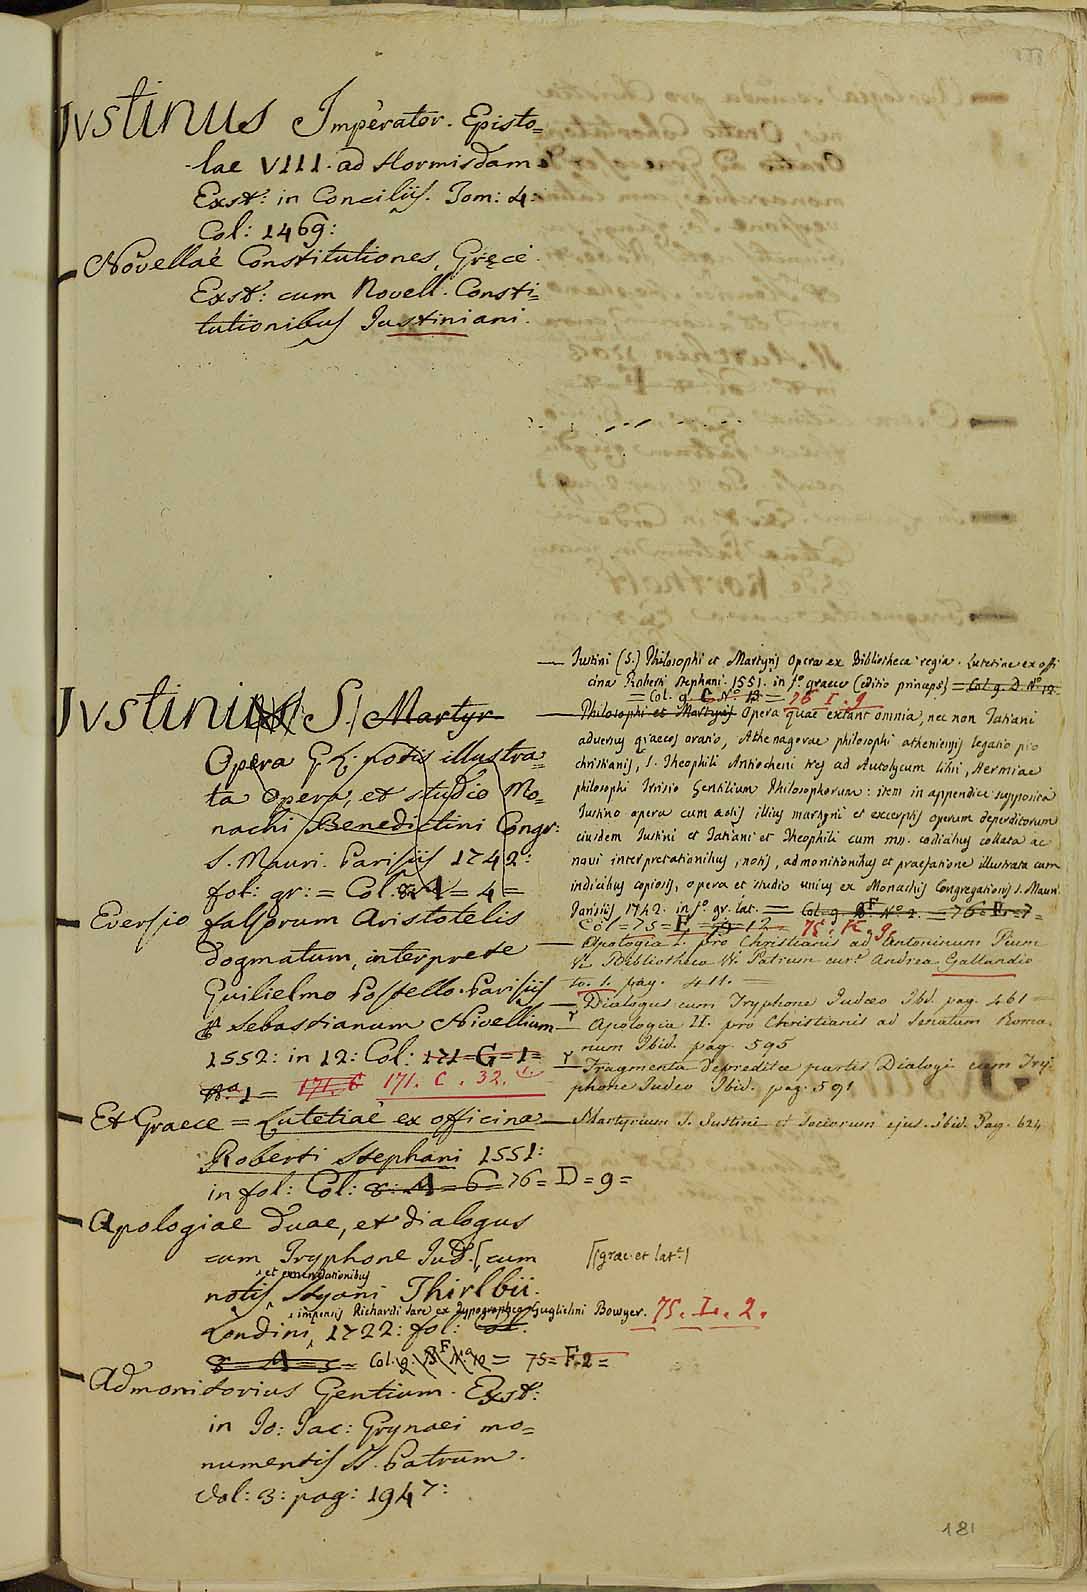 Justinus Imperator. Episto=
lae VIII. ad Hormisdam
Exst: in Conciliis. Tom: 4:
Col: 1469:
Novellae Constitutiones, Gręce.
Exst: cum Novell. Consti=
tutionibus Justiniani.
Justinus S. Martyr
Opera G. L. notis illustra=
ta opera, et studio Mo=
nachi Benedictini Congr:
S. Mauri. Parisiis 1742:
fol: gr: = Col: 8. A = 4 =
Eversio falsorum Aristotelis
dogmatum, interprete
Guilielmo Postello. Parisiis
Sebastianum Nivellium
1552: in 12: Col: 171 = G = 1 =
Nº 1 = 171. C 171. C. 32.
Et Graece = Lutetiae ex officina
Roberti Stephani 1551:
in fol: Col: 8: A = 6 = 76 = D = 9 =
Apologiae duae, et dialogus
cum Tryphone Jud. [cum [(grae. et lat.)
et emendationibus
notis, Styani Thirlbii.
impensis Richardi Sare ex Typographeo Guglielmi Bowyer. 75. I. 2.
Londini, 1722: fol: Col:
8 = A = 5 = Col. 9. B F Nº 10 = 75 = F. 2 =
Admonitorius Gentium. Exst:
in Jo: Jac: Grynaei mo=
numentis SS. Patrum.
Vol: 3: pag: 1947:
Justini (S.) Philosophi et Martyris Opera ex Bibliotheca regia. Lutetiae ex offi
cina Roberti Stephani. 1551. in fº graece (editio princeps) = Col. 9. D. Nº 12.
= Col. 9. C Nº 13 = 76 I. 9
Philosophi et Martyris Opera quae extant omnia, nec non Tatiani
adversus graecos oratio, Athenagorae philosophi atheniensis legatio pro
christianis, S. Theophili Antiocheni tres ad Autolycum libri, Hermiae
philosophi Irrisio Gentilium Philosophorum: item in appendice supposita
Justino opera cum actis illius martyrii et excerptis operum deperditorum
eiusdem Justini et Tatiani et Theophili cum mss. codicibus collata ac
novi interpretationibus, notis, admonitionibus et praefatione illustrata cum
indicibus copiosis, opera et studio unius ex Monachis Congregationis S. Mauri.
Parisiis 1742. in fº. gr. lat. = Col. 9. B. F Nº 2. = 76 = E = 7 =
Col = 75 = E = 12 = 75. K. 9.
Apologia I. pro Christianis ad Antoninum Pium
Bibliotheca Patrum cura Andrea Gallandio
to. 1. pag. 411. =
Dialogus cum Tryphone Judeo Ibid. pag. 461 =
Apologia II. pro Christianis ad Senatum Roma
num Ibid. pag. 595
Fragmenta deperditae partis Dialogi cum Try
phone Judeo Ibid. pag. 591
Martyrium S. Justini et Sociorum ejus. Ibid. Pag. 624
181